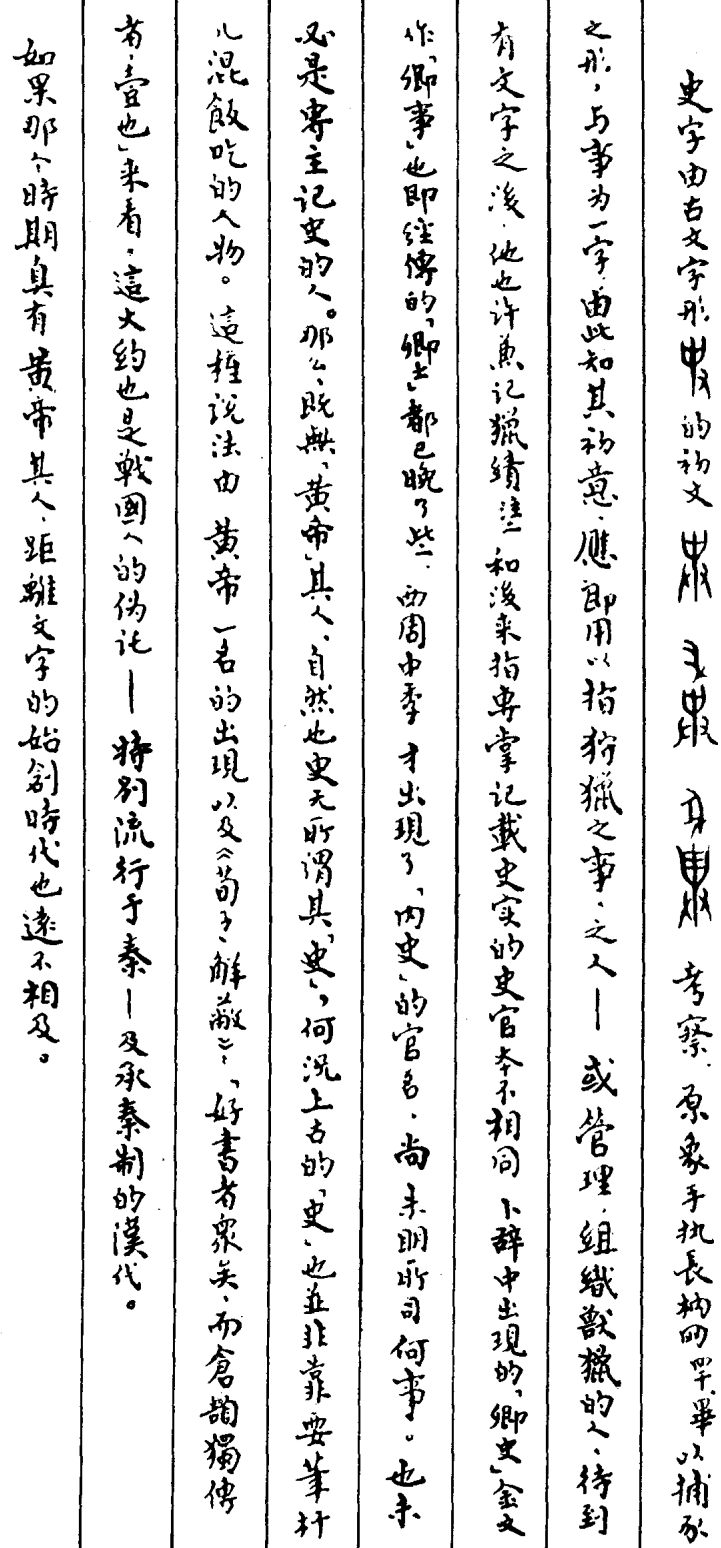 史字由古文字形的初文考察，原象手执長柄网、畢以捕豕
之形，与事为一字，由此知其初意，應即用以指狩獵之事、之人—或管理，组織獸獵的人，待到
有文字之後，他也许兼记獵績，和後来指専掌記載史实的史官本不相同，卜辞中出現的「卿史」金文
作「卿事」也即经傳的「卿士」都已晚了些，西周中季才出現了「内史」的官名，尚未明所司何事。也未
必是専主记史的人。那么，既無「黄帝」其人，自然也更无所谓其「史」，何況上古的「史」也並非靠耍筆杆
儿混飯吃的人物。這種説法由黄帝一名的出現以及《荀子·解蔽》：「好書者衆矣，而倉頡獨傳
者，壹也」来看，這大約也是戰國人的伪讬—特别流行于秦—及承秦制的漢代。
如果那个時期真有黄帝其人，距離文字的始創時代也遠不相及。